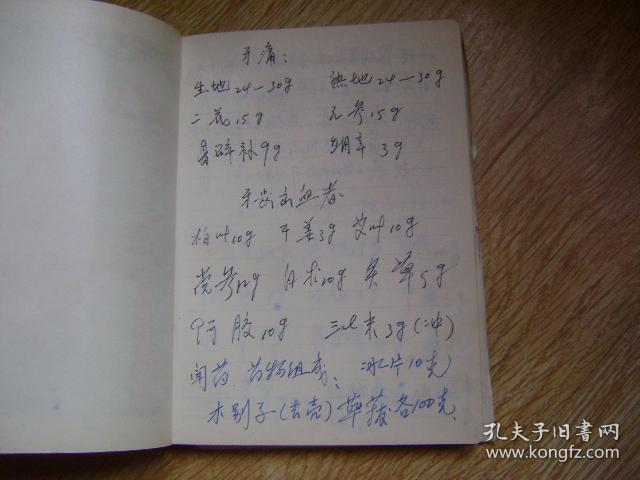 牙痛：
生地24—30g 熟地24—30g
二花15g 元参15g
骨碎补9g 细辛3g
牙齿出血者
柏叶10g 干姜3g 艾叶10g
党参12g 白术10g 炙草5g
阿胶10g 三七末3g(冲)
闻药 药物组成： 冰片10克
木别子(去壳) 荜茇 各100克
孔夫子旧书网
www.kongfz.com